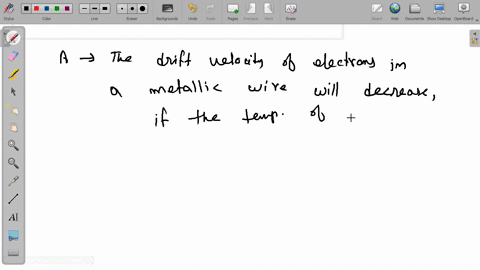 Background Undo Redo Pages Previous Next Erase Board Web Documents Show Desktop OpenBoard
A → The drift velocity of electrons in
a metallic wire will decrease,
if the temp. of